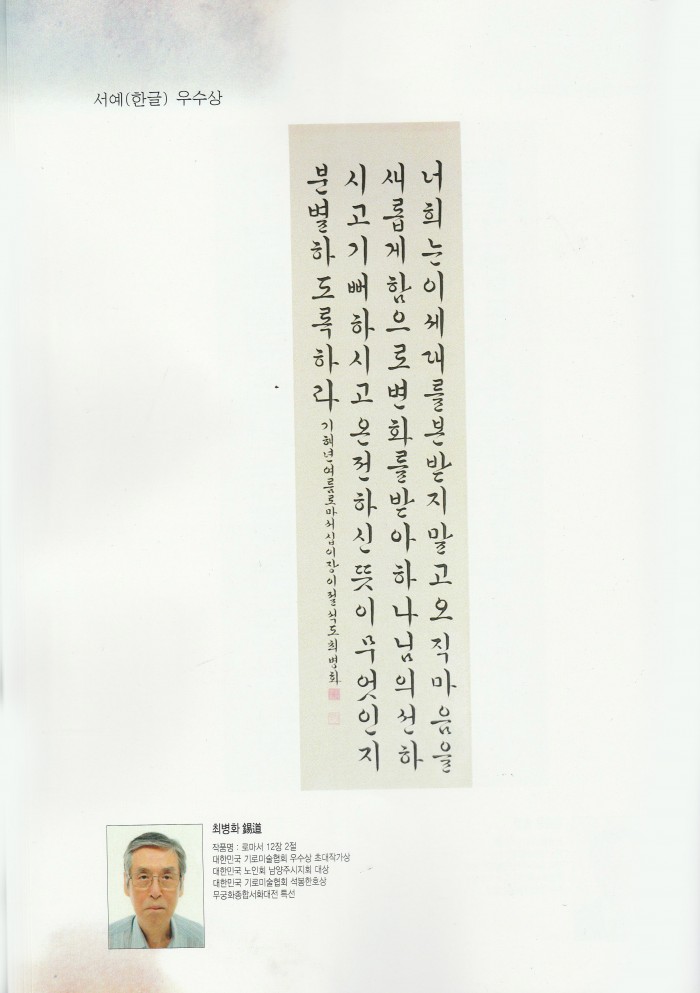 서예(한글) 우수상
너희는이세대를본받지말고오직마음을
새롭게함으로변화를받아하나님의선하
시고기뻐하시고온전하신뜻이무엇인지
분별하도록하라 기해년여름로마서십이장이절석도최병화
최병화 錫道
작품명 : 로마서 12장 2절
대한민국 기로미술협회 우수상 초대작가상
대한민국 노인회 남양주시지회 대상
대한민국 기로미술협회 석봉한호상
무궁화종합서화대전 특선